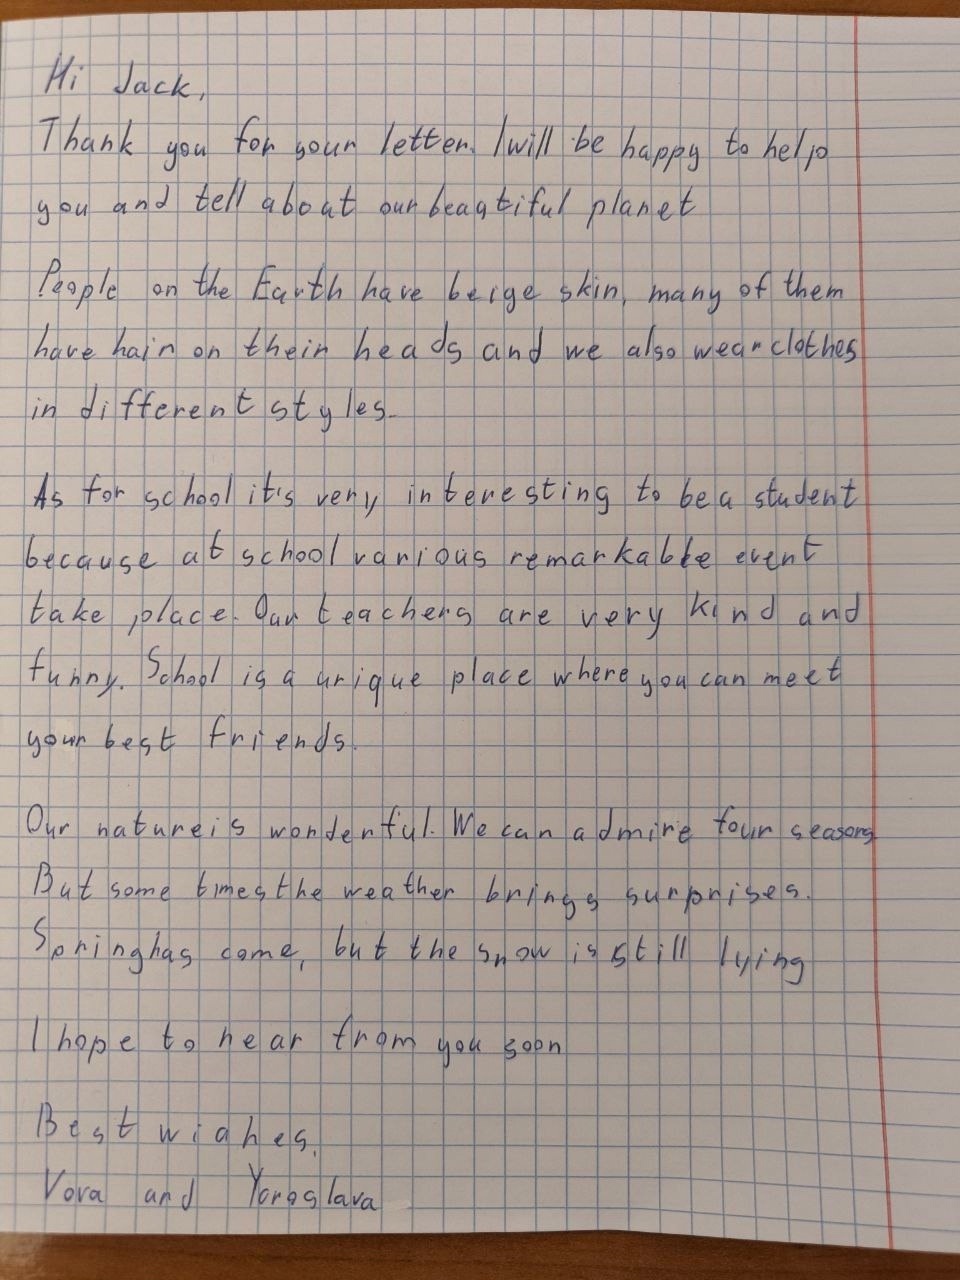 Hi Jack,
Thank you for your letter. I will be happy to help
you and tell about our beautiful planet
People on the Earth have beige skin, many of them
have hair on their heads and we also wear clothes
in different styles.
As for school it's very interesting to be a student
because at school various remarkable event
take place. Our teachers are very kind and
funny. School is a unique place where you can meet
your best friends.
Our nature is wonderful. We can admire four seasons
But some times the weather brings surprises.
Spring has come, but the snow is still lying
I hope to hear from you soon
Best wishes,
Vova and Yaroslava